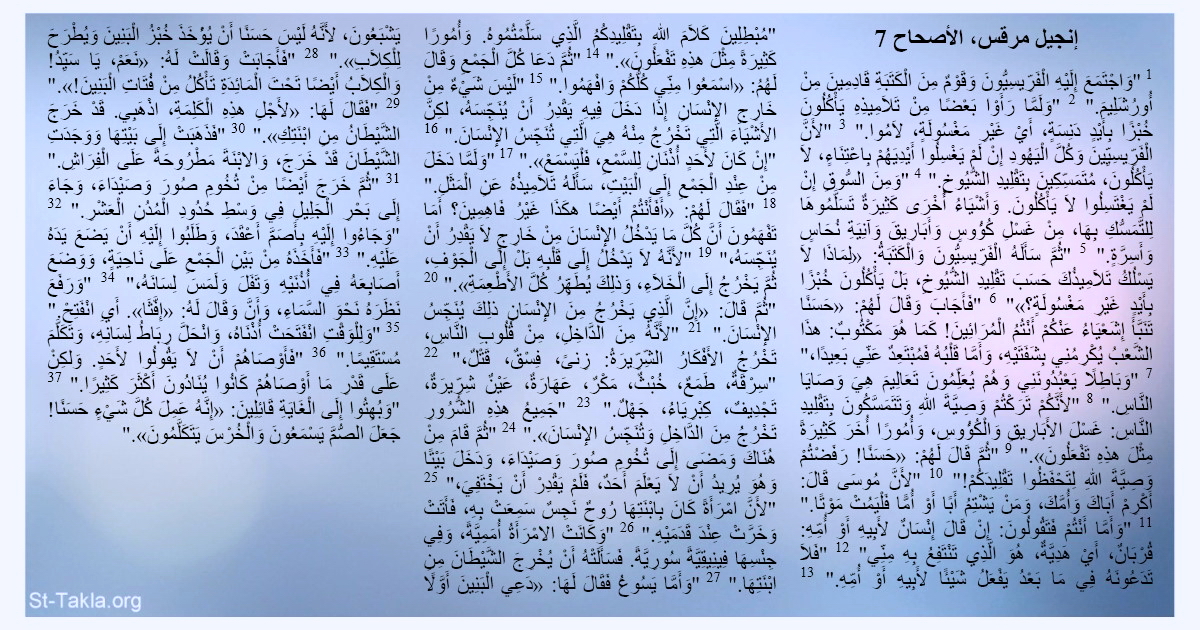 إنجيل مرقس، الأصحاح 7
1 "وَاجْتَمَعَ إِلَيْهِ الْفَرِّيسِيُّونَ وَقَوْمٌ مِنَ الْكَتَبَةِ قَادِمِينَ مِنْ
أُورُشَلِيمَ." 2 "وَلَمَّا رَأَوْا بَعْضًا مِنْ تَلاَمِيذِهِ يَأْكُلُونَ
خُبْزًا بِأَيْدٍ دَنِسَةٍ، أَيْ غَيْرِ مَغْسُولَةٍ، لاَمُوا." 3 "لأَنَّ
الْفَرِّيسِيِّينَ وَكُلَّ الْيَهُودِ إِنْ لَمْ يَغْسِلُوا أَيْدِيَهُمْ بِاعْتِنَاءٍ، لاَ
يَأْكُلُونَ، مُتَمَسِّكِينَ بِتَقْلِيدِ الشُّيُوخِ." 4 "وَمِنَ السُّوقِ إِنْ
لَمْ يَغْتَسِلُوا لاَ يَأْكُلُونَ. وَأَشْيَاءُ أُخْرَى كَثِيرَةٌ تَسَلَّمُوهَا
لِلتَّمَسُّكِ بِهَا، مِنْ غَسْلِ كُؤُوسٍ وَأَبَارِيقَ وَآنِيَةِ نُحَاسٍ
وَأَسِرَّةٍ." 5 "ثُمَّ سَأَلَهُ الْفَرِّيسِيُّونَ وَالْكَتَبَةُ: «لِمَاذَا لاَ
يَسْلُكُ تَلاَمِيذُكَ حَسَبَ تَقْلِيدِ الشُّيُوخِ، بَلْ يَأْكُلُونَ خُبْزًا
بِأَيْدٍ غَيْرِ مَغْسُولَةٍ؟»" 6 "فَأَجَابَ وَقَالَ لَهُمْ: «حَسَنًا
تَنَبَّأَ إِشَعْيَاءُ عَنْكُمْ أَنْتُمُ الْمُرَائِينَ! كَمَا هُوَ مَكْتُوبٌ: هذَا
الشَّعْبُ يُكْرِمُنِي بِشَفَتَيْهِ، وَأَمَّا قَلْبُهُ فَمُبْتَعِدٌ عَنِّي بَعِيدًا،"
7 "وَبَاطِلاً يَعْبُدُونَنِي وَهُمْ يُعَلِّمُونَ تَعَالِيمَ هِيَ وَصَايَا
النَّاسِ." 8 "لأَنَّكُمْ تَرَكْتُمْ وَصِيَّةَ اللهِ وَتَتَمَسَّكُونَ بِتَقْلِيدِ
النَّاسِ: غَسْلَ الأَبَارِيقِ وَالْكُؤُوسِ، وَأُمُورًا أُخَرَ كَثِيرَةً
مِثْلَ هذِهِ تَفْعَلُونَ»." 9 "ثُمَّ قَالَ لَهُمْ: «حَسَنًا! رَفَضْتُمْ
وَصِيَّةَ اللهِ لِتَحْفَظُوا تَقْلِيدَكُمْ!" 10 "لأَنَّ مُوسَى قَالَ:
أَكْرِمْ أَبَاكَ وَأُمَّكَ، وَمَنْ يَشْتِمُ أَبًا أَوْ أُمًّا فَلْيَمُتْ مَوْتًا."
11 "وَأَمَّا أَنْتُمْ فَتَقُولُونَ: إِنْ قَالَ إِنْسَانٌ لأَبِيهِ أَوْ أُمِّهِ:
قُرْبَانٌ، أَيْ هَدِيَّةٌ، هُوَ الَّذِي تَنْتَفِعُ بِهِ مِنِّي" 12 "فَلاَ
تَدَعُونَهُ فِي مَا بَعْدُ يَفْعَلُ شَيْئًا لأَبِيهِ أَوْ أُمِّهِ." 13
"مُبْطِلِينَ كَلاَمَ اللهِ بِتَقْلِيدِكُمُ الَّذِي سَلَّمْتُمُوهُ. وَأُمُورًا
كَثِيرَةً مِثْلَ هذِهِ تَفْعَلُونَ»." 14 "ثُمَّ دَعَا كُلَّ الْجَمْعِ وَقَالَ
لَهُمُ: «اسْمَعُوا مِنِّي كُلُّكُمْ وَافْهَمُوا." 15 "لَيْسَ شَيْءٌ مِنْ
خَارِجِ الإِنْسَانِ إِذَا دَخَلَ فِيهِ يَقْدِرُ أَنْ يُنَجِّسَهُ، لكِنَّ
الأَشْيَاءَ الَّتِي تَخْرُجُ مِنْهُ هِيَ الَّتِي تُنَجِّسُ الإِنْسَانَ." 16
"إِنْ كَانَ لأَحَدٍ أُذْنَانِ لِلسَّمْعِ، فَلْيَسْمَعْ»." 17 "وَلَمَّا دَخَلَ
مِنْ عِنْدِ الْجَمْعِ إِلَى الْبَيْتِ، سَأَلَهُ تَلاَمِيذُهُ عَنِ الْمَثَلِ."
18 "فَقَالَ لَهُمْ: «أَفَأَنْتُمْ أَيْضًا هكَذَا غَيْرُ فَاهِمِينَ؟ أَمَا
تَفْهَمُونَ أَنَّ كُلَّ مَا يَدْخُلُ الإِنْسَانَ مِنْ خَارِجٍ لاَ يَقْدِرُ أَنْ
يُنَجِّسَهُ،" 19 "لأَنَّهُ لاَ يَدْخُلُ إِلَى قَلْبِهِ بَلْ إِلَى الْجَوْفِ،
ثُمَّ يَخْرُجُ إِلَى الْخَلاَءِ، وَذلِكَ يُطَهِّرُ كُلَّ الأَطْعِمَةِ»." 20
"ثُمَّ قَالَ: «إِنَّ الَّذِي يَخْرُجُ مِنَ الإِنْسَانِ ذلِكَ يُنَجِّسُ
الإِنْسَانَ." 21 "لأَنَّهُ مِنَ الدَّاخِلِ، مِنْ قُلُوبِ النَّاسِ،
تَخْرُجُ الأَفْكَارُ الشِّرِّيرَةُ: زِنىً، فِسْقٌ، قَتْلٌ،" 22
"سِرْقَةٌ، طَمَعٌ، خُبْثٌ، مَكْرٌ، عَهَارَةٌ، عَيْنٌ شِرِّيرَةٌ،
تَجْدِيفٌ، كِبْرِيَاءُ، جَهْلٌ." 23 "جَمِيعُ هذِهِ الشُّرُورِ
تَخْرُجُ مِنَ الدَّاخِلِ وَتُنَجِّسُ الإِنْسَانَ»." 24 "ثُمَّ قَامَ مِنْ
هُنَاكَ وَمَضَى إِلَى تُخُومِ صُورَ وَصَيْدَاءَ، وَدَخَلَ بَيْتًا
وَهُوَ يُرِيدُ أَنْ لاَ يَعْلَمَ أَحَدٌ، فَلَمْ يَقْدِرْ أَنْ يَخْتَفِيَ،" 25
"لأَنَّ امْرَأَةً كَانَ بِابْنَتِهَا رُوحٌ نَجِسٌ سَمِعَتْ بِهِ، فَأَتَتْ
وَخَرَّتْ عِنْدَ قَدَمَيْهِ." 26 "وَكَانَتْ الامْرَأَةُ أُمَمِيَّةً، وَفِي
جِنْسِهَا فِينِيقِيَّةً سُورِيَّةً. فَسَأَلَتْهُ أَنْ يُخْرِجَ الشَّيْطَانَ مِنِ
ابْنَتِهَا." 27 "وَأَمَّا يَسُوعُ فَقَالَ لَهَا: «دَعِي الْبَنِينَ أَوَّلًا
يَشْبَعُونَ، لأَنَّهُ لَيْسَ حَسَنًا أَنْ يُؤْخَذَ خُبْزُ الْبَنِينَ وَيُطْرَحَ
لِلْكِلاَبِ»." 28 "فَأَجَابَتْ وَقَالَتْ لَهُ: «نَعَمْ، يَا سَيِّدُ!
وَالْكِلاَبُ أَيْضًا تَحْتَ الْمَائِدَةِ تَأْكُلُ مِنْ فُتَاتِ الْبَنِينَ!»."
29 "فَقَالَ لَهَا: «لأَجْلِ هذِهِ الْكَلِمَةِ، اذْهَبِي. قَدْ خَرَجَ
الشَّيْطَانُ مِنِ ابْنَتِكِ»." 30 "فَذَهَبَتْ إِلَى بَيْتِهَا وَوَجَدَتِ
الشَّيْطَانَ قَدْ خَرَجَ، وَالابْنَةَ مَطْرُوحَةً عَلَى الْفِرَاشِ."
31 "ثُمَّ خَرَجَ أَيْضًا مِنْ تُخُومِ صُورَ وَصَيْدَاءَ، وَجَاءَ
إِلَى بَحْرِ الْجَلِيلِ فِي وَسْطِ حُدُودِ الْمُدُنِ الْعَشْرِ." 32
"وَجَاءُوا إِلَيْهِ بِأَصَمَّ أَعْقَدَ، وَطَلَبُوا إِلَيْهِ أَنْ يَضَعَ يَدَهُ
عَلَيْهِ." 33 "فَأَخَذَهُ مِنْ بَيْنِ الْجَمْعِ عَلَى نَاحِيَةٍ، وَوَضَعَ
أَصَابِعَهُ فِي أُذُنَيْهِ وَتَفَلَ وَلَمَسَ لِسَانَهُ،" 34 "وَرَفَعَ
نَظَرَهُ نَحْوَ السَّمَاءِ، وَأَنَّ وَقَالَ لَهُ: «إِفَّثَا». أَيِ انْفَتِحْ."
35 "وَلِلْوَقْتِ انْفَتَحَتْ أُذْنَاهُ، وَانْحَلَّ رِبَاطُ لِسَانِهِ، وَتَكَلَّمَ
مُسْتَقِيمًا." 36 "فَأَوْصَاهُمْ أَنْ لاَ يَقُولُوا لأَحَدٍ. وَلكِنْ
عَلَى قَدْرِ مَا أَوْصَاهُمْ كَانُوا يُنَادُونَ أَكْثَرَ كَثِيرًا." 37
"وَبُهِتُوا إِلَى الْغَايَةِ قَائِلِينَ: «إِنَّهُ عَمِلَ كُلَّ شَيْءٍ حَسَنًا!
جَعَلَ الصُّمَّ يَسْمَعُونَ وَالْخُرْسَ يَتَكَلَّمُونَ»."
St-Takla.org